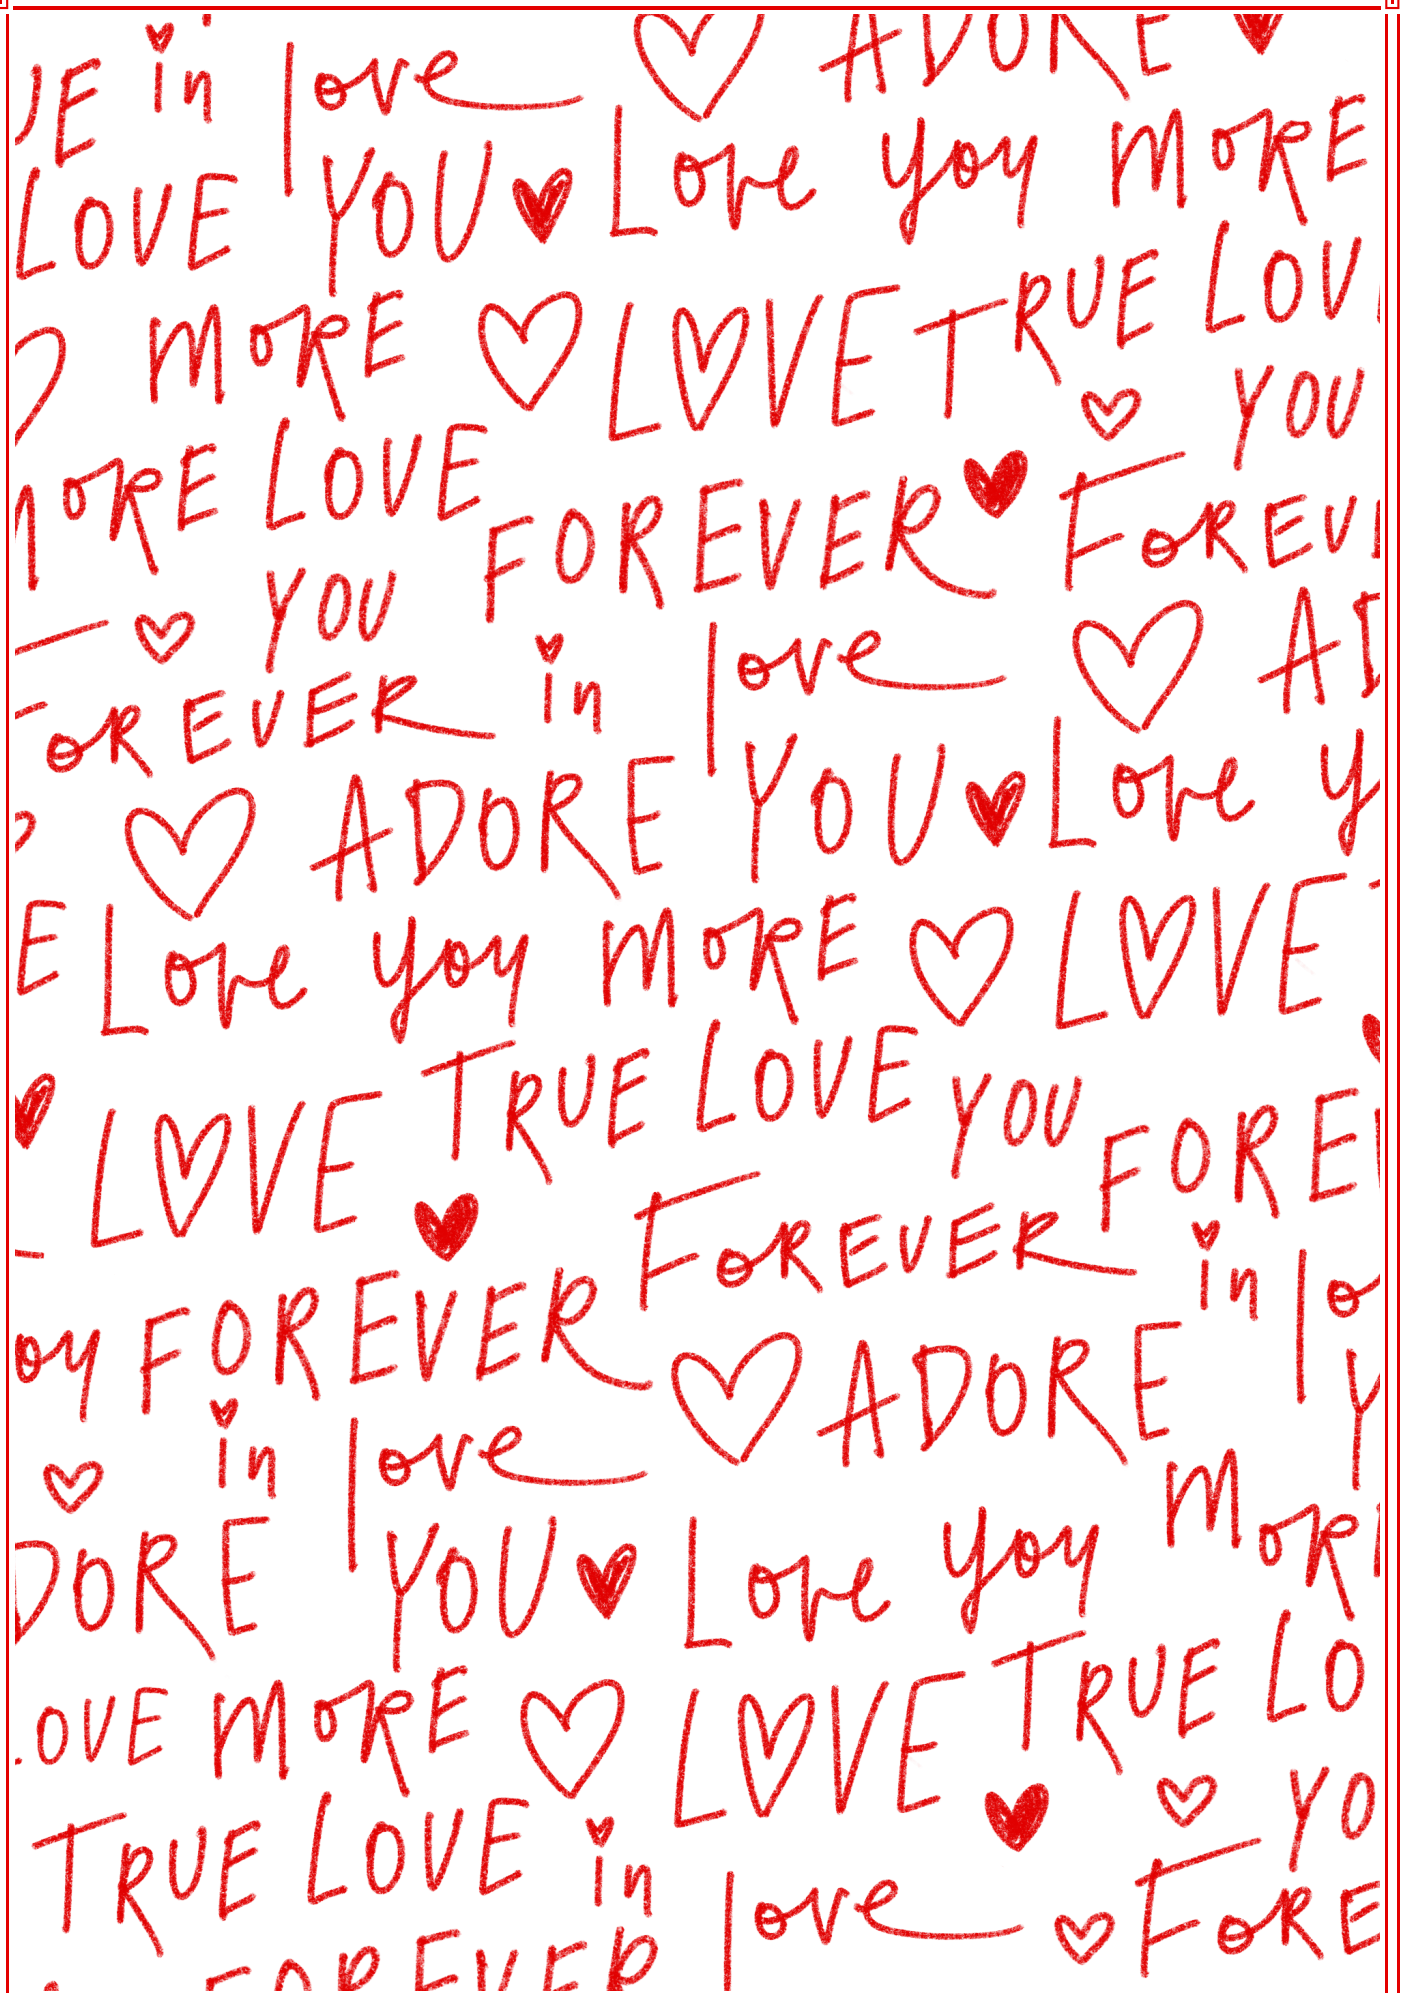 UE in love ♡ ADORE
LOVE YOU Love you MORE
MORE ♡ LOVE TRUE LOV
YOU
MORE LOVE FOREVER FOREVE
YOU
FOREVER in love ♡ AD
♡ ADORE YOU Love y
E Love you MORE ♡ LOVE
LOVE TRUE LOVE YOU FOREV
FOREVER in lo
oy FOREVER ♡ ADORE Y
in love
DORE YOU Love you MORE
OVE MORE ♡ LOVE TRUE LO
YO
TRUE LOVE in love FORE
FOREVER